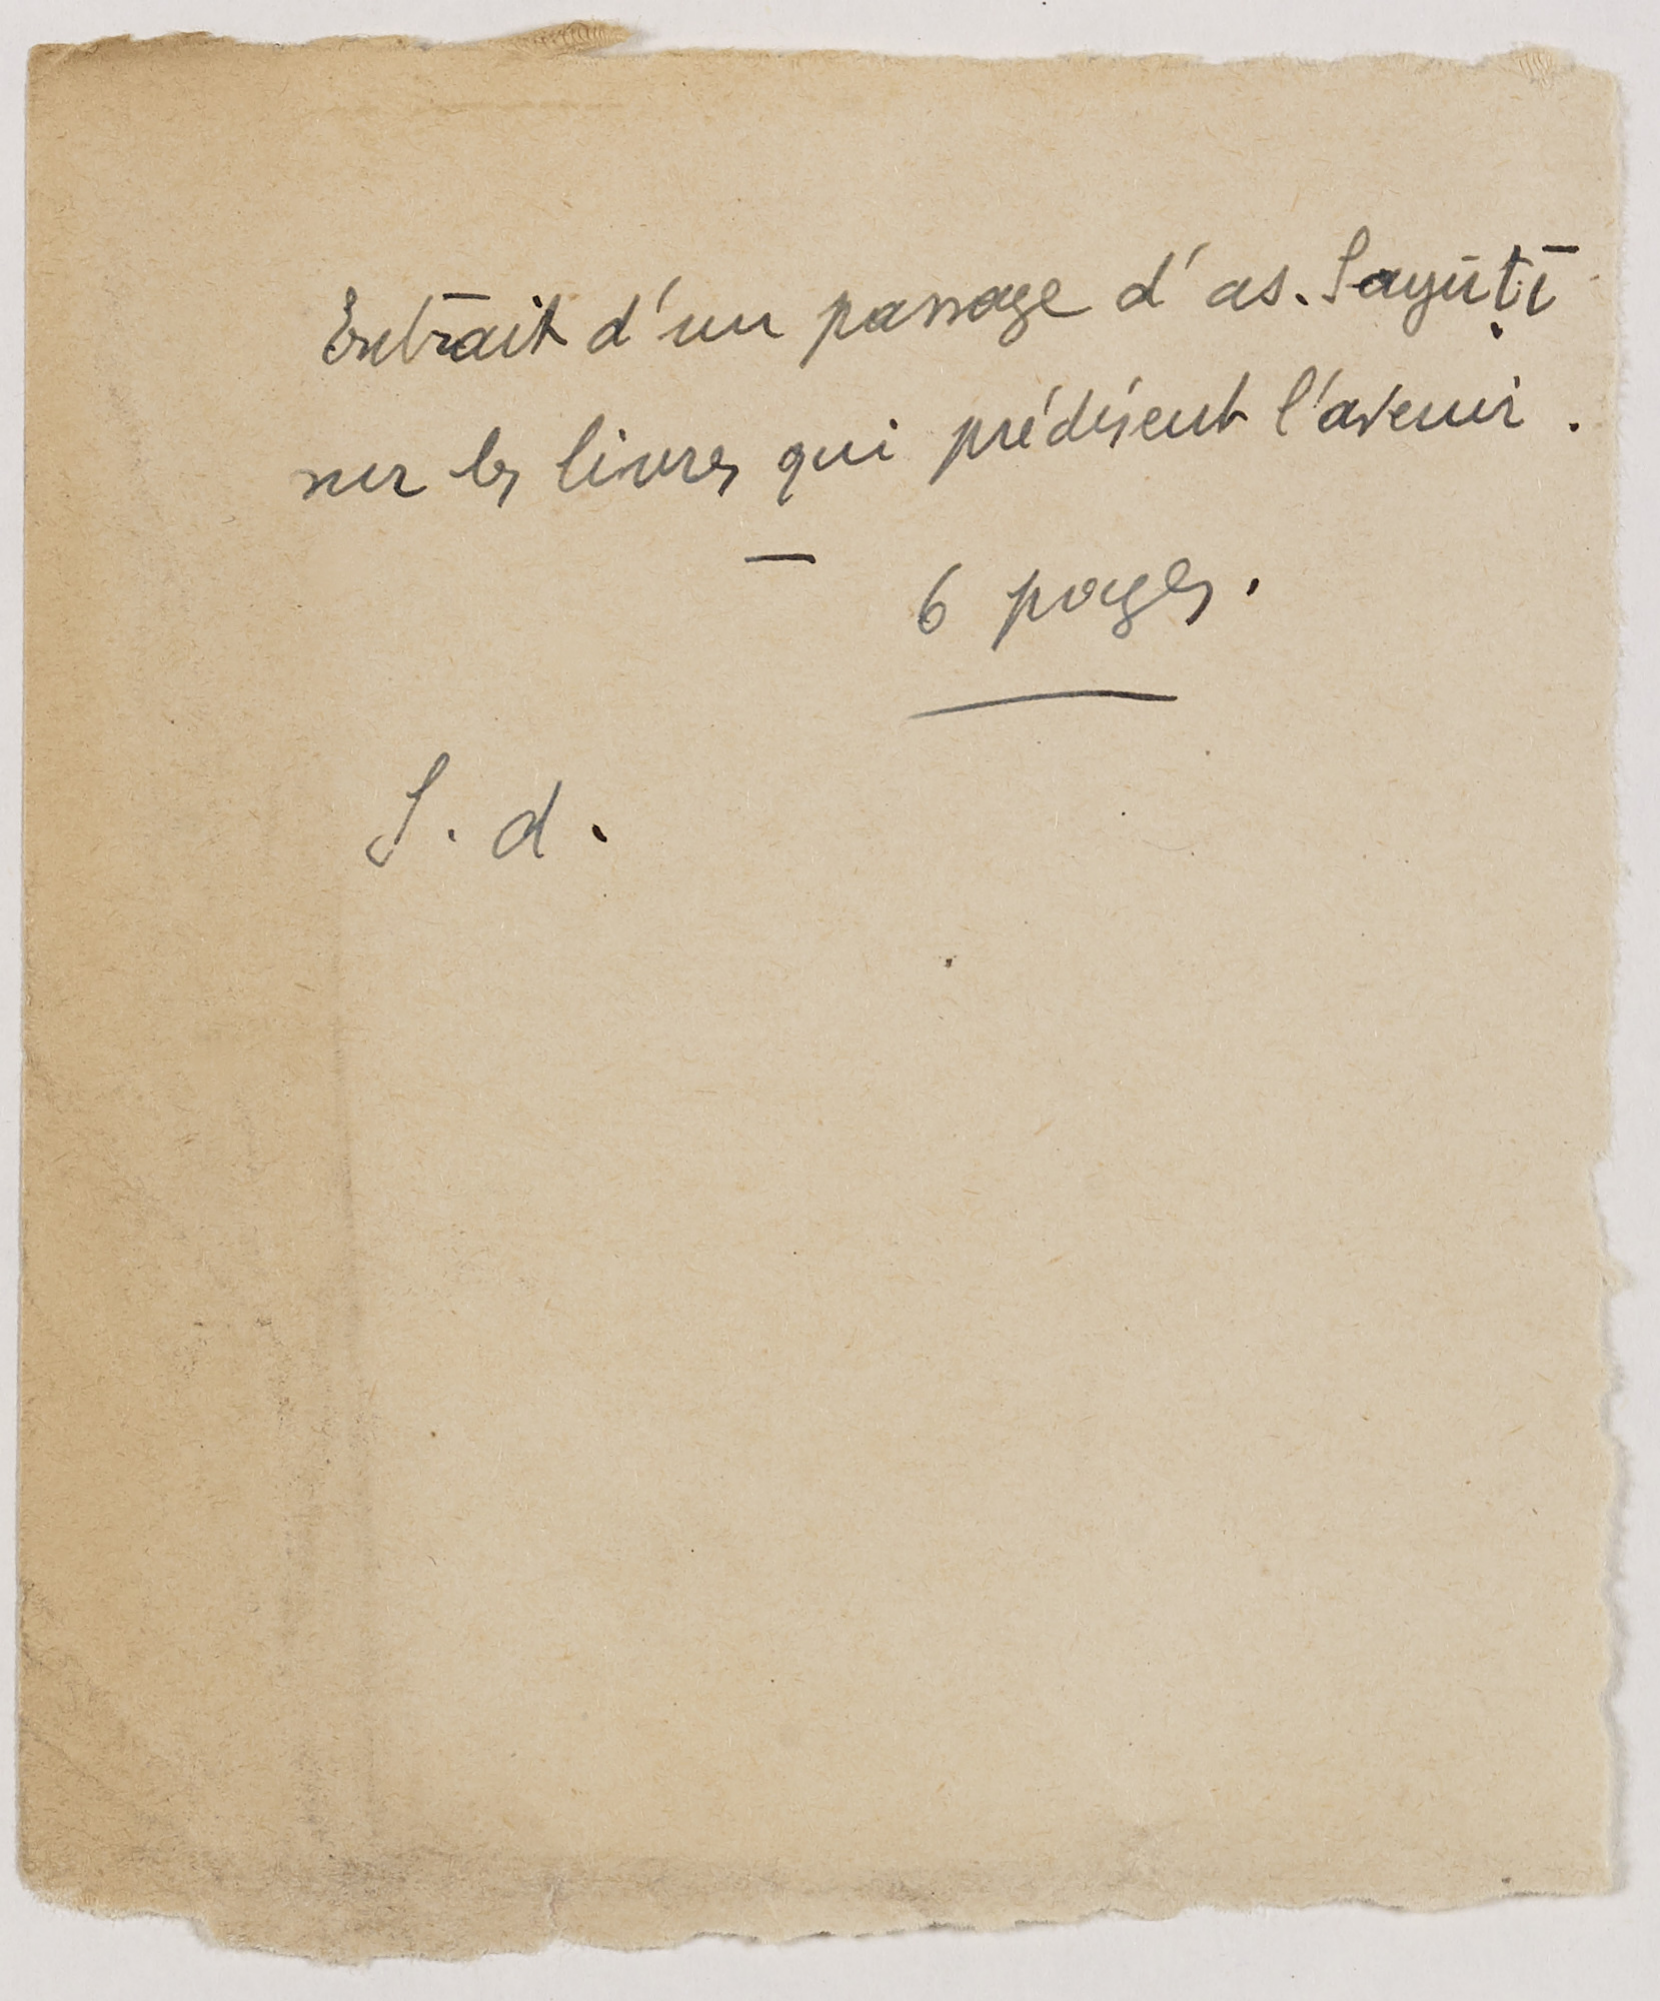 Extrait d'un passage d'as. Sayūṭī
sur les livres qui prédisent l'avenir.
— 6 pages.
S. d.